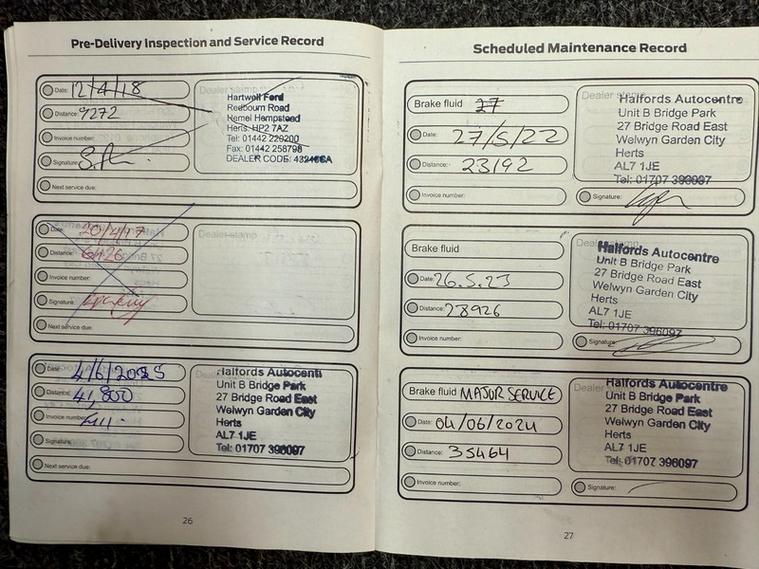 Pre-Delivery Inspection and Service Record
Date: 12/4/18
Distance: 9272
Invoice number:
Signature:
Next service due:
Hartwell Ford
Redbourn Road
Hemel Hempstead
Herts. HP2 7AZ
Tel: 01442 220200
Fax: 01442 258798
DEALER CODE:
Date: 20/4/17
Distance: 6426
Invoice number:
Signature:
Next service due:
Dealer stamp
Date: 4/6/2025
Distance: 41,800
Invoice number:
Signature:
Next service due:
Halfords Autocent
Unit B Bridge Park
27 Bridge Road East
Welwyn Garden City
Herts
AL7 1JE
Tel: 01707 396097
26
Scheduled Maintenance Record
Brake fluid 27
Date: 27/5/22
Distance: 23192
Invoice number:
Dealer stamp
Halfords Autocentre
Unit B Bridge Park
27 Bridge Road East
Welwyn Garden City
Herts
AL7 1JE
Tel: 01707 396097
Signature:
Brake fluid
Date: 26.5.23
Distance: 28926
Invoice number:
Halfords Autocentre
Unit B Bridge Park
27 Bridge Road East
Welwyn Garden City
Herts
AL7 1JE
Tel: 01707 396097
Signature:
Brake fluid MAJOR SERVICE
Date: 04/06/2024
Distance: 35464
Invoice number:
Dealer
Halfords Autocentre
Unit B Bridge Park
27 Bridge Road East
Welwyn Garden City
Herts
AL7 1JE
Tel: 01707 396097
Signature:
27